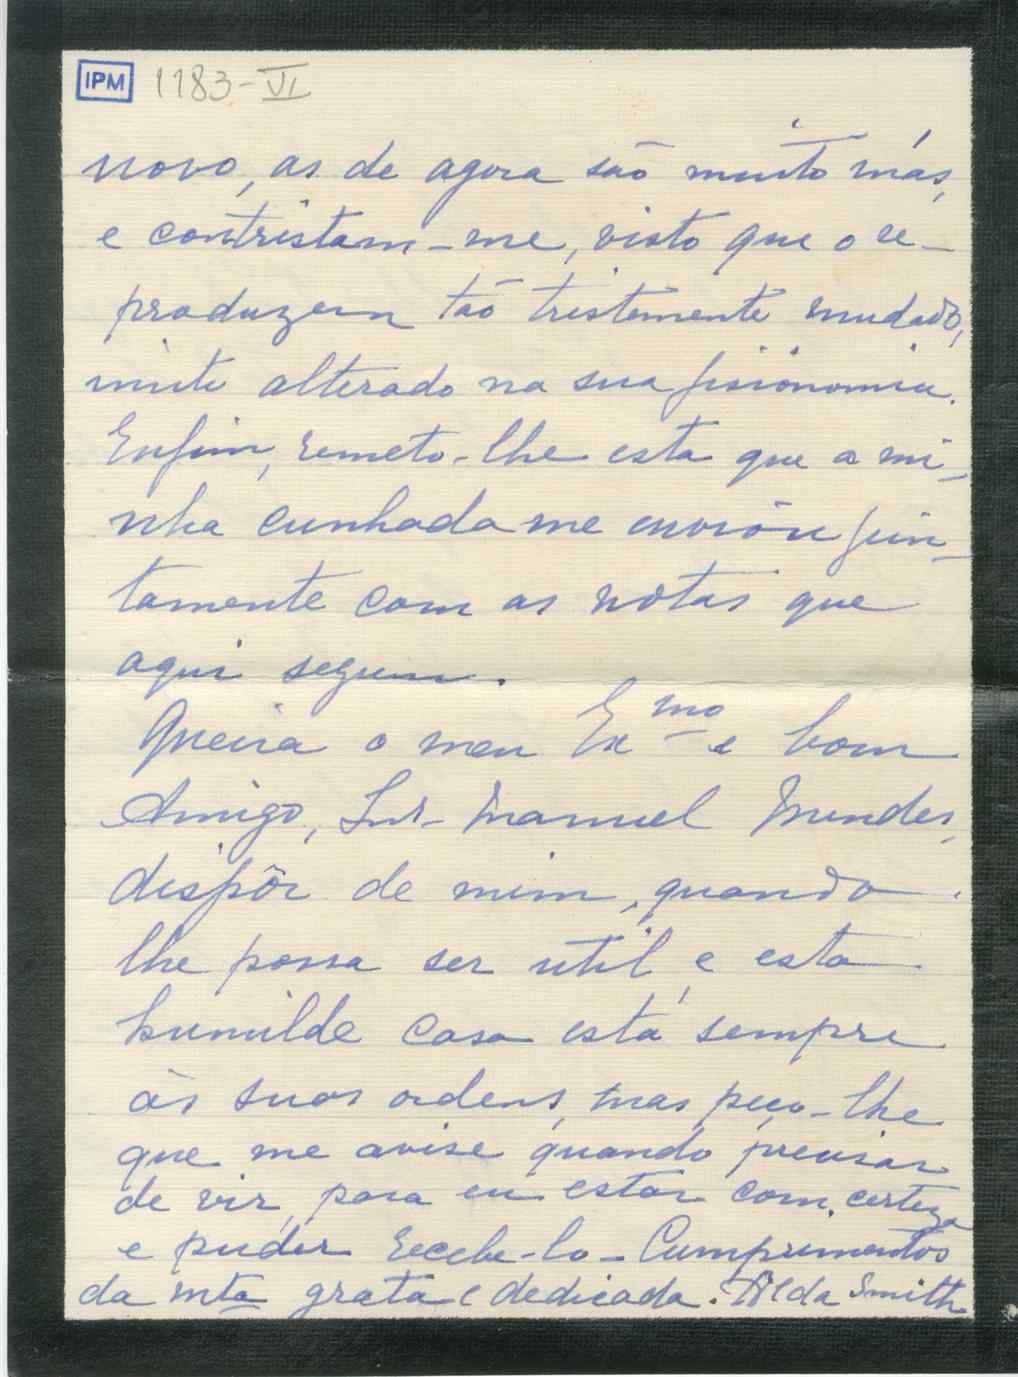 IPM 1183-VI
novo, as de agora são muito más,
e contristam-me, visto que o re-
produzem tão tristemente mudado,
muito alterado na sua fisionomia.
Enfim, remeto-lhe esta que a mi-
nha cunhada me enviou jun-
tamente com as notas que
aqui seguem.
Queira o meu Exmo e bom
Amigo, Snr. Manuel Mendes,
dispôr de mim, quando
lhe possa ser util, e esta
humilde casa está sempre
às suas ordens, mas peço-lhe
que me avise quando precisar
de vir, para eu estar com certeza
e pudér recebe-lo - Cumprimentos
da mta grata e dedicada. Alda Smith